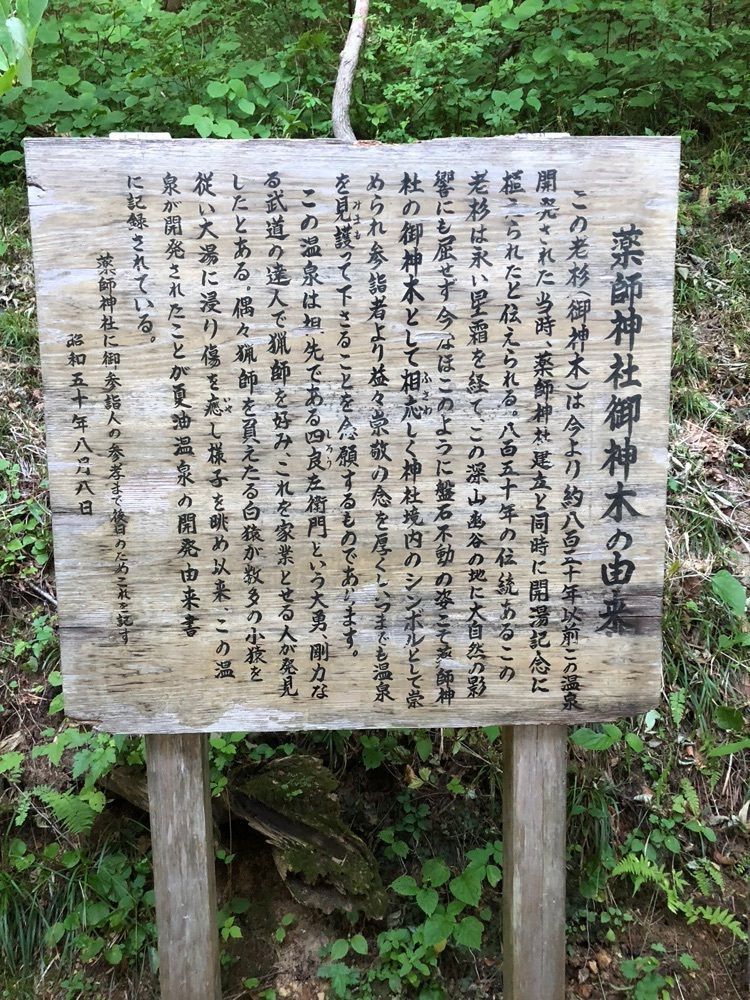 薬師神社御神木の由来
この老杉(御神木)は今より約八百五十年以前この温泉
開発された当時、薬師神社建立と同時に開湯記念に
植えられたと伝えられる。八百五十年の伝統あるこの
老杉は永い星霜を経て、この深山幽谷の地に大自然の影
響にも屈せず今なほこのように盤石不動の姿こそ薬師神
社の御神木として相応しく神社境内のシンボルとして崇
ふさわ
められ参詣者より益々崇敬の念を厚くし、いつまでも温泉
を見護って下さることを念願するものであります。
みまも
この温泉は祖先である四良左衛門という大勇、剛力な
しろう
る武道の達人で猟師を好み、これを家業とせる人が発見
したとある。偶々猟師を負えたる白猿が数多の小猿を
従い大湯に浸り傷を癒し様子を眺め以来、この温
いや
泉が開発されたことが夏油温泉の開発由来書
に記録されている。
薬師神社に御参詣人の参考まで後日のためこれを記す
昭和五十年八月八日